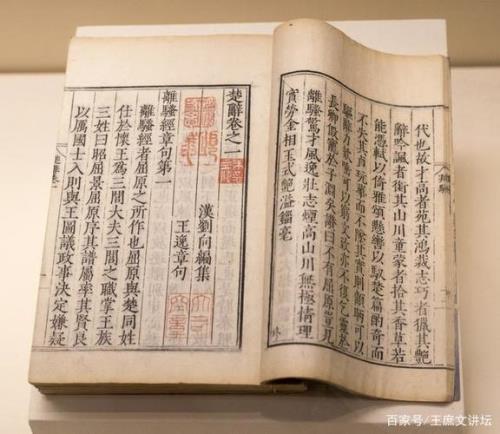 代也故才高者苑其鴻裁志巧者獵其艷
辭吟諷者銜其山川童蒙者拾其香草若
能憑軾以倚雅頌懸轡以馭楚篇酌奇而
不失其貞翫華而不墜其實則顧盼可以
驅辭力欬唾可以窮文致亦不復乞靈於
長卿假寵於子淵矣讚曰不有屈原豈見
離騷驚才風逸壯志煙高山川無極情理
實勞金相玉式艷溢錙毫
楚辭卷之一
漢劉向編集
王逸章句
離騷經章句第一
離騷經者屈原之所作也屈原與楚同姓
仕於懷王爲三閭大夫三閭之職掌王族
三姓曰昭屈景屈原序其譜屬率其賢良
以厲國士入則與王圖議政事決定嫌疑
百家号/王庶文讲坛